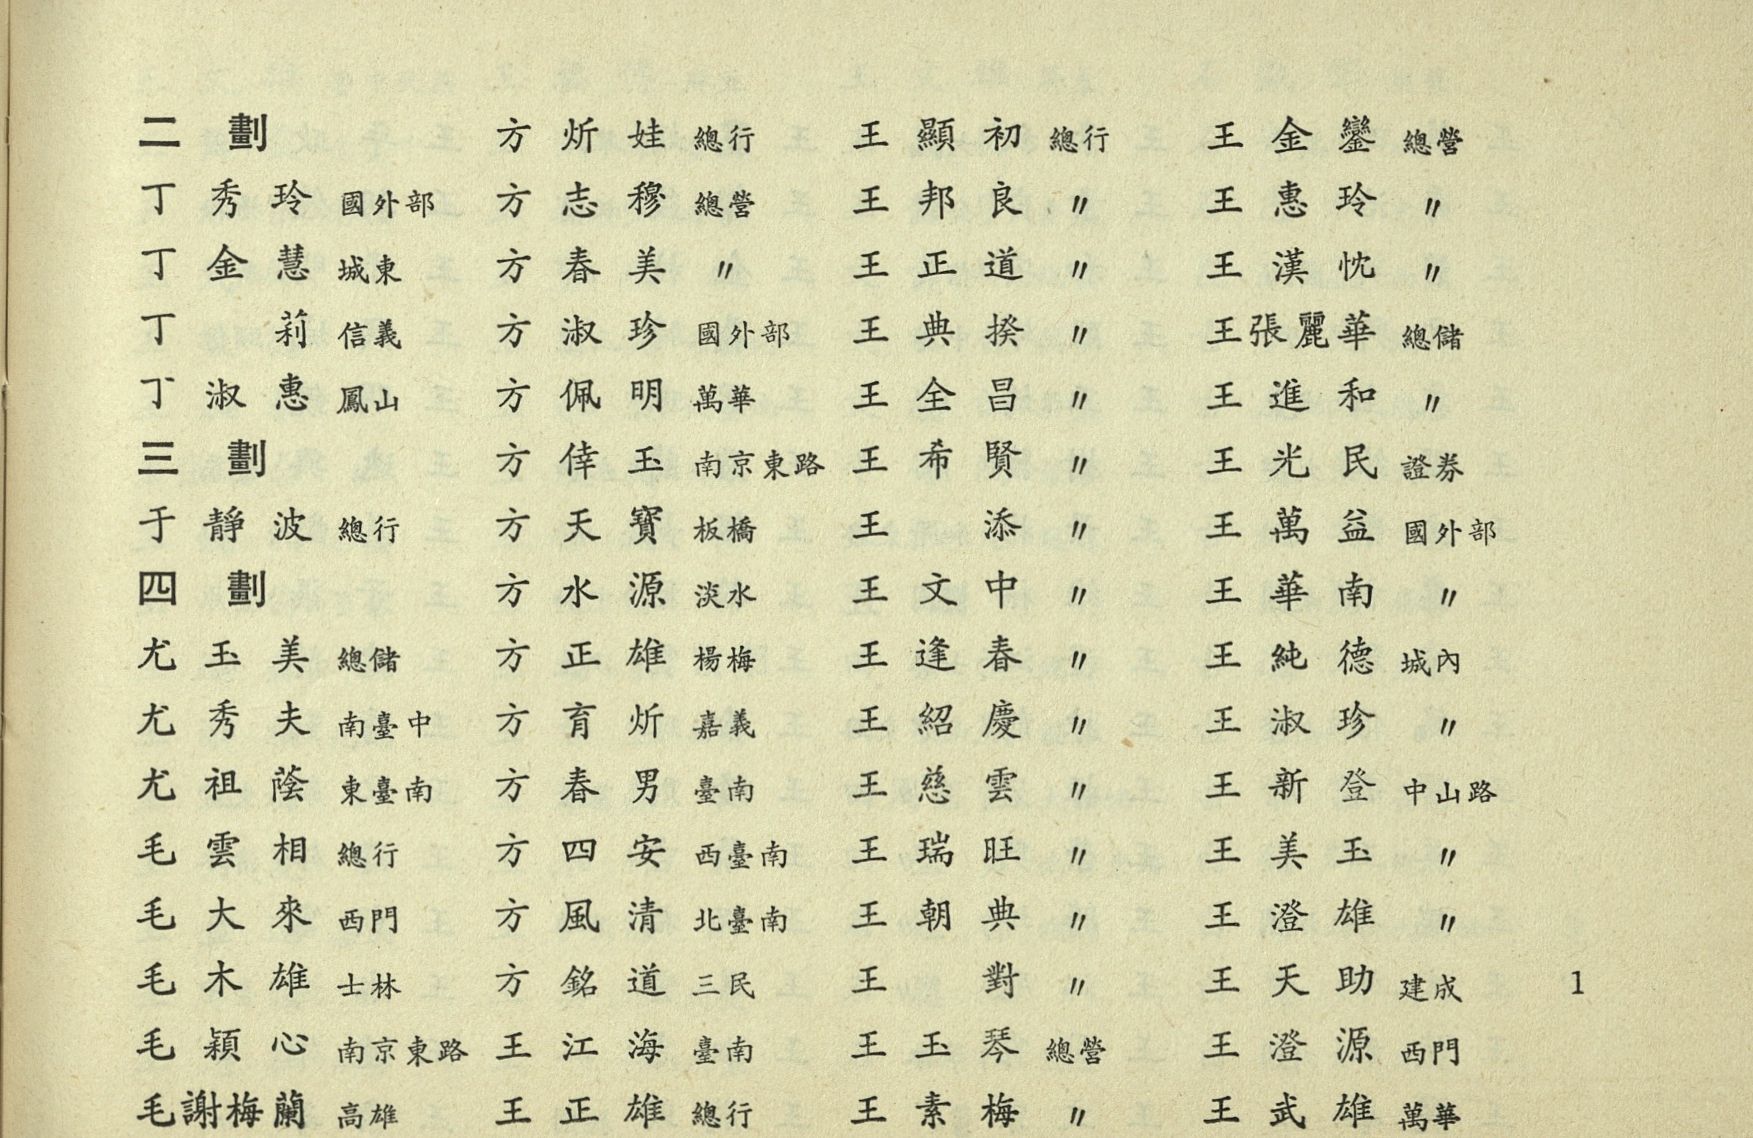 二劃
丁秀玲 國外部
丁金慧 城東
丁莉 信義
丁淑惠 鳳山
三劃
于靜波 總行
四劃
尤玉美 總儲
尤秀夫 南臺中
尤祖蔭 東臺南
毛雲相 總行
毛大來 西門
毛木雄 士林
毛穎心 南京東路
毛謝梅蘭 高雄
方炘娃 總行
方志穆 總營
方春美 〃
方淑珍 國外部
方佩明 萬華
方倖玉 南京東路
方天寶 板橋
方水源 淡水
方正雄 楊梅
方育炘 嘉義
方春男 臺南
方四安 西臺南
方風清 北臺南
方銘道 三民
王江海 臺南
王正雄 總行
王顯初 總行
王邦良 〃
王正道 〃
王典揆 〃
王全昌 〃
王希賢 〃
王添 〃
王文中 〃
王逢春 〃
王紹慶 〃
王慈雲 〃
王瑞旺 〃
王朝典 〃
王對 〃
王玉琴 總營
王素梅 〃
王金鑾 總營
王惠玲 〃
王漢忱 〃
王張麗華 總儲
王進和 〃
王光民 證券
王萬益 國外部
王華南 〃
王純德 城內
王淑珍 〃
王新登 中山路
王美玉 〃
王澄雄 〃
王天助 建成
王澄源 西門
王武雄 萬華
1